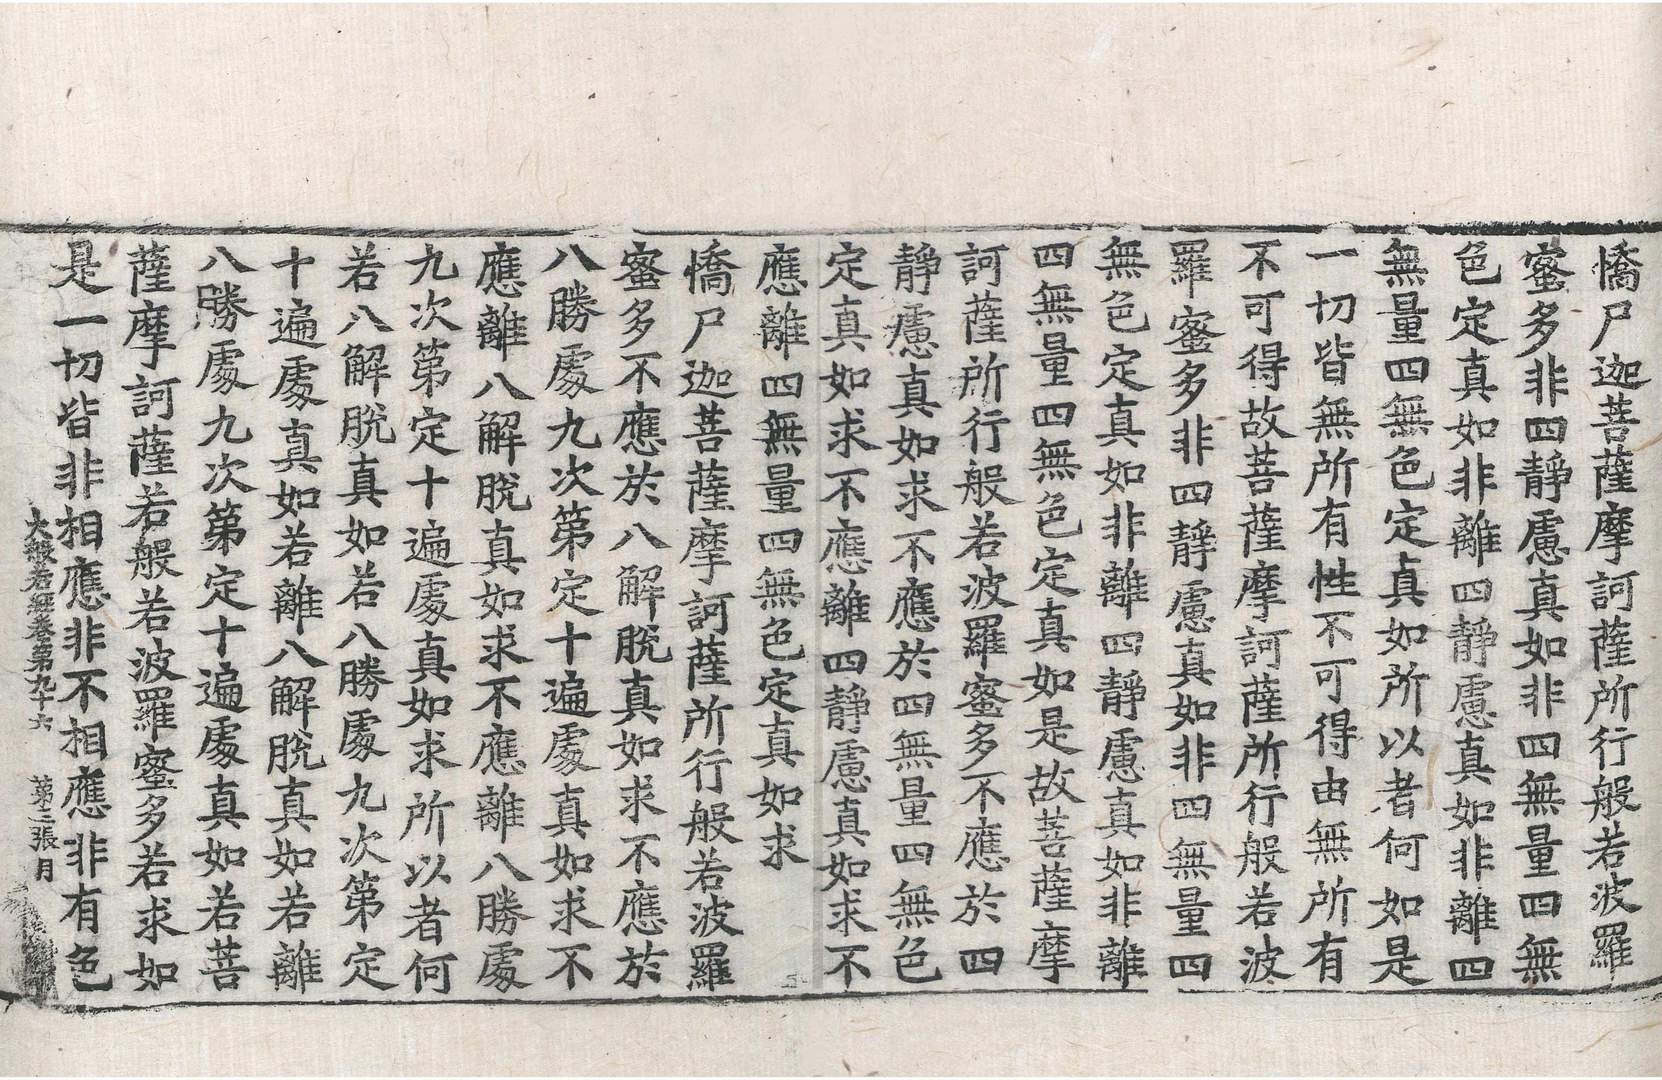 憍尸迦菩薩摩訶薩所行般若波羅
蜜多非四靜慮真如非四無量四無
色定真如非離四靜慮真如非離四
無量四無色定真如所以者何如是
一切皆無所有性不可得由無所有
不可得故菩薩摩訶薩所行般若波
羅蜜多非四靜慮真如非四無量四
無色定真如非離四靜慮真如非離
四無量四無色定真如是故菩薩摩
訶薩所行般若波羅蜜多不應於四
靜慮真如求不應於四無量四無色
定真如求不應離四靜慮真如求不
應離四無量四無色定真如求
憍尸迦菩薩摩訶薩所行般若波羅
蜜多不應於八解脫真如求不應於
八勝處九次第定十遍處真如求不
應離八解脫真如求不應離八勝處
九次第定十遍處真如求所以者何
若八解脫真如若八勝處九次第定
十遍處真如若離八解脫真如若離
八勝處九次第定十遍處真如若菩
薩摩訶薩若般若波羅蜜多若求如
是一切皆非相應非不相應非有色
大般若經卷第九十六 第二張 月